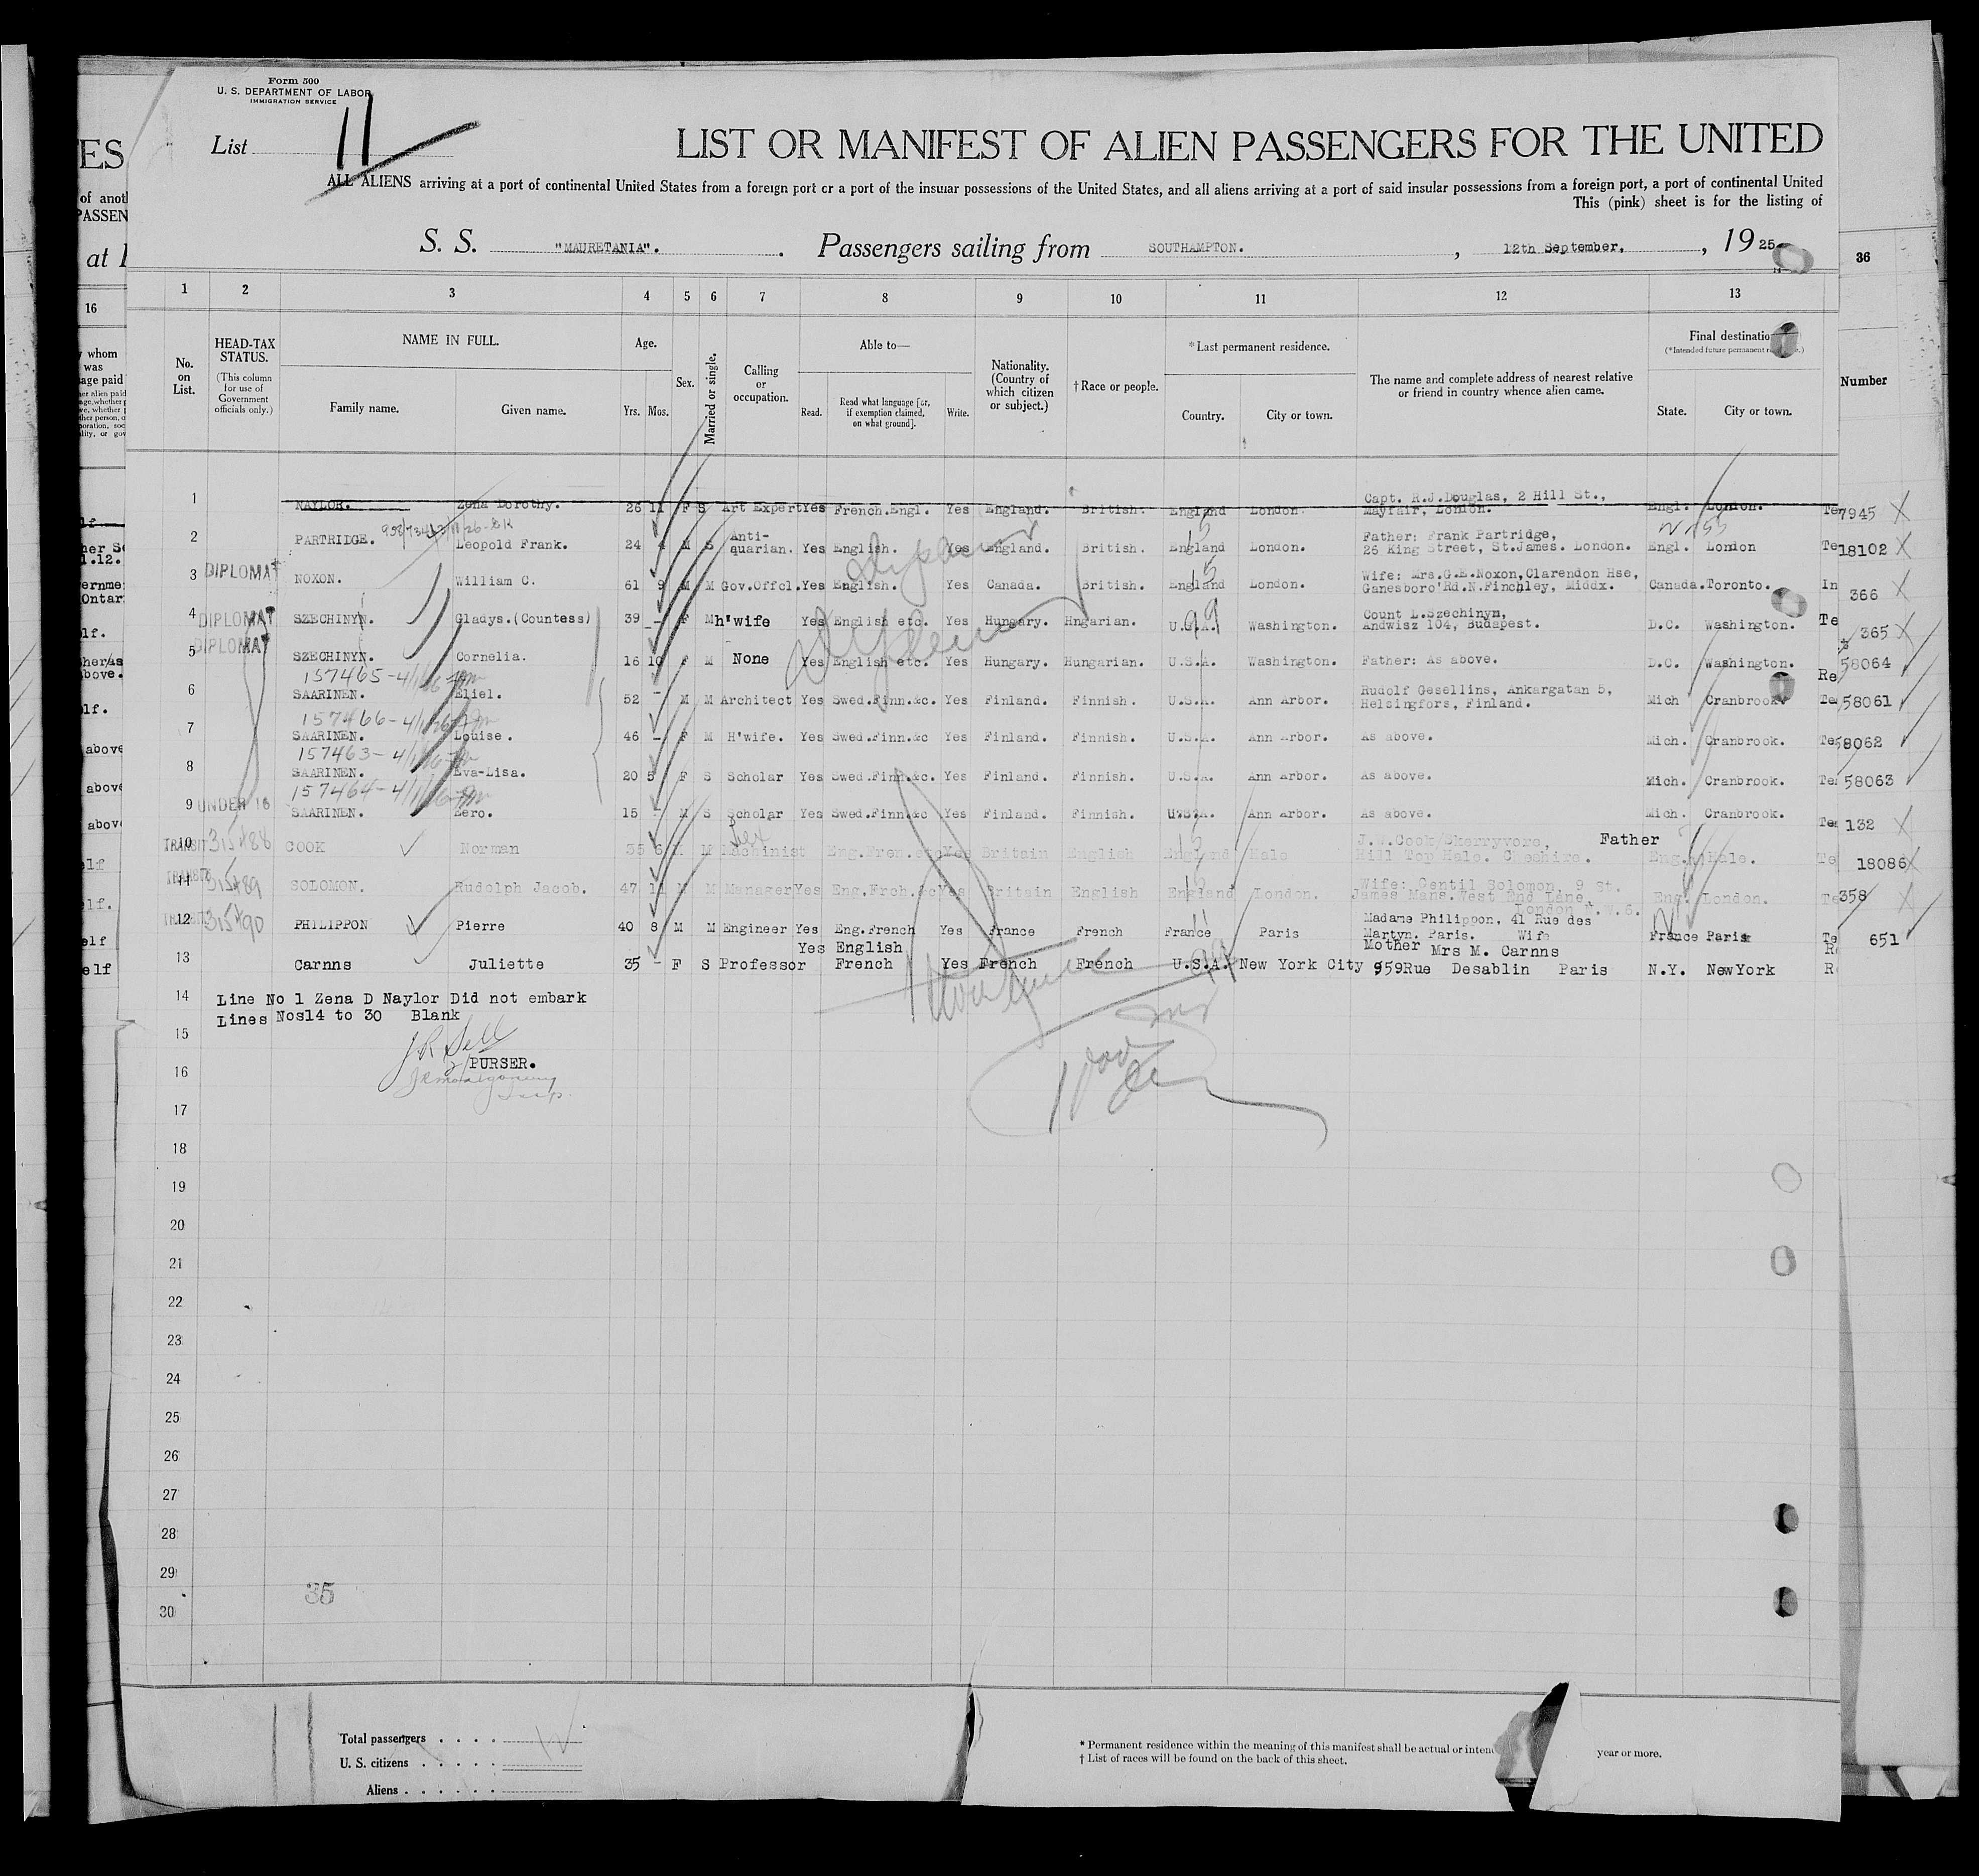 Form 500
U. S. DEPARTMENT OF LABOR
IMMIGRATION SERVICE
List 11
LIST OR MANIFEST OF ALIEN PASSENGERS FOR THE UNITED
ALL ALIENS arriving at a port of continental United States from a foreign port or a port of the insular possessions of the United States, and all aliens arriving at a port of said insular possessions from a foreign port, a port of continental United
This (pink) sheet is for the listing of
S. S. "MAURETANIA". Passengers sailing from SOUTHAMPTON. , 12th September, , 19 25
1 2 3 4 5 6 7 8 9 10 11 12 13
16
36
No. on List.
HEAD-TAX STATUS.
(This column for use of Government officials only.)
NAME IN FULL.
Family name. Given name.
Age.
Yrs. Mos.
Sex.
Married or single.
Calling or occupation.
Able to—
Read. Read what language [or, if exemption claimed, on what ground]. Write.
Nationality. (Country of which citizen or subject.)
† Race or people.
*Last permanent residence.
Country. City or town.
The name and complete address of nearest relative or friend in country whence alien came.
Final destination
(*Intended future permanent
State. City or town.
Number
1 NAYLOR. Zena Dorothy. 26 11 F S Art Expert Yes French.Engl. Yes England. British. England London. Capt. R.J.Douglas, 2 Hill St., Mayfair, London. Engl. London. Te 7945
2 PARTRIDGE. Leopold Frank. 24 4 M S Anti-quarian. Yes English. Yes England. British. England London. Father: Frank Partridge, 26 King Street, St.James. London. Engl. London Te 18102
3 DIPLOMAT NOXON. William C. 61 9 M M Gov.Offcl. Yes English. Yes Canada. British. England London. Wife: Mrs.G.E.Noxon,Clarendon Hse, Ganesboro'Rd.N.Finchley, Middx. Canada. Toronto. In 366
4 DIPLOMAT SZECHINYN. Gladys.(Countess) 39 - F M h'wife Yes English etc. Yes Hungary. Hngarian. U.S.A. Washington. Count L.Szechinyn, Andwisz 104, Budapest. D.C. Washington. Te 365
5 DIPLOMAT SZECHINYN. Cornelia. 16 10 F M None Yes English etc. Yes Hungary. Hungarian. U.S.A. Washington. Father: As above. D.C. Washington. Re 58064
157465-4/1/26
6 SAARINEN. Eliel. 52 - M M Architect Yes Swed.Finn.&c. Yes Finland. Finnish. U.S.A. Ann Arbor. Rudolf Gesellins, Ankargatan 5, Helsingfors, Finland. Mich Cranbrook. Te 58061
157466-4/1/26
7 SAARINEN. Louise. 46 - F M H'wife. Yes Swed.Finn.&c Yes Finland. Finnish. U.S.A. Ann Arbor. As above. Mich. Cranbrook. Te 58062
157463-4/1/26
8 SAARINEN. Eva-Lisa. 20 5 F S Scholar Yes Swed.Finn.&c. Yes Finland. Finnish. U.S.A. Ann Arbor. As above. Mich. Cranbrook. Te 58063
157464-4/1/26
9 UNDER 16 SAARINEN. Eero. 15 - M S Scholar Yes Swed.Finn.&c Yes Finland. Finnish. U.S.A. Ann Arbor. As above. Mich. Cranbrook. Te 132
10 TRANSIT 315488 COOK Norman 35 6 M M Machinist Eng.Fren.etc Yes Britain English England Hale J.W.Cook Skerryvore, Father Hill Top Hale. Cheshire. Eng. Hale. Te 18086
11 TRANSIT 315489 SOLOMON. Rudolph Jacob. 47 11 M M Manager Yes Eng.Frch.&c Yes Britain English England London. Wife: Gentil Solomon, 9 St. James Mans.West End Lane, London N.W.6. Eng. London. Te 358
12 TRANSIT 315490 PHILIPPON Pierre 40 8 M M Engineer Yes Eng.French Yes France French France Paris Madame Philippon, 41 Rue des Martyn. Paris. Wife France Paris Te 651
13 Carnns Juliette 35 - F S Professor Yes English French Yes French French U.S.A. New York City Mother Mrs M. Carnns 959Rue Desablin Paris N.Y. NewYork R
14 Line No 1 Zena D Naylor Did not embark
Lines Nos14 to 30 Blank
15
PURSER.
16
17
18
19
20
21
22
23
24
25
26
27
28
29
30
35
Total passengers
U. S. citizens
Aliens
* Permanent residence within the meaning of this manifest shall be actual or inten year or more.
† List of races will be found on the back of this sheet.